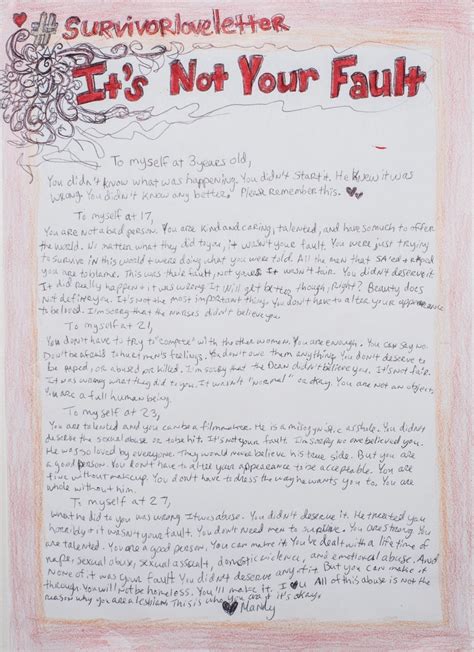 #SURVIVORloveletter
It's Not Your Fault
To myself at 3 years old,
You didn't know what was happening. You didn't start it. He knew it was
wrong. You didn't know any better. Please remember this.
To myself at 17,
You are not a bad person. You are kind and caring, talented, and have so much to offer
the world. No matter what they did to you, it wasn't your fault. You were just trying
to survive in this world & were doing what you were told. All the men that
you are to blame. This was their fault, not yours. It wasn't fair. You didn't deserve it.
It did really happen & it was wrong. It will get better, though, right? Beauty does
not define you. It's not the most important thing. You don't have to alter your appearance
to be loved. I'm sorry that the nurses didn't believe you.
To myself at 21,
You don't have to try to "compete" with the other women. You are enough. You can say no.
Don't be afraid to hurt men's feelings. You don't owe them anything. You don't deserve to
be raped, or abused or killed. I'm sorry that the Dean didn't believe you. It's not fair.
It was wrong what they did to you. It wasn't "normal" or okay. You are not an object,
you are a full human being.
To myself at 23,
You are talented and you can be a filmmaker. He is a misogynistic asshole. You didn't
deserve the sexual abuse or to be hit. It's not your fault. I'm sorry no one believed you.
He was so loved by everyone. They would make believe his true side. But you are
a good person. You don't have to alter your appearance to be acceptable. You are
fine without makeup. You don't have to dress the way he wants you to. You are
whole without him.
To myself at 27,
What he did to you was wrong. It was abuse. You didn't deserve it. He treated you
horribly & it wasn't your fault. You don't need men to survive. You are strong. You
are talented. You are a good person. You can make it. You've dealt with a lifetime of
rape, sexual abuse, sexual assault, domestic violence, and emotional abuse. And
none of it was your fault. You didn't deserve any of it. But you can make it
through. You will not be homeless. You'll make it. I you. All of this abuse is not the
reason why you are a lesbian. This is who you are & it's okay.
Mandy